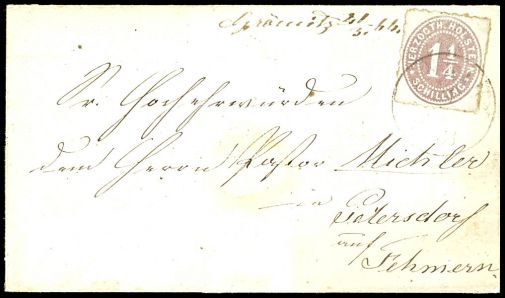 HERZOGTH. HOLSTEIN
1 1/4
SCHILLING
Sr. Hochehrwürden
dem Herrn Pastor Michler
in
Petersdorf
auf
Fehmern